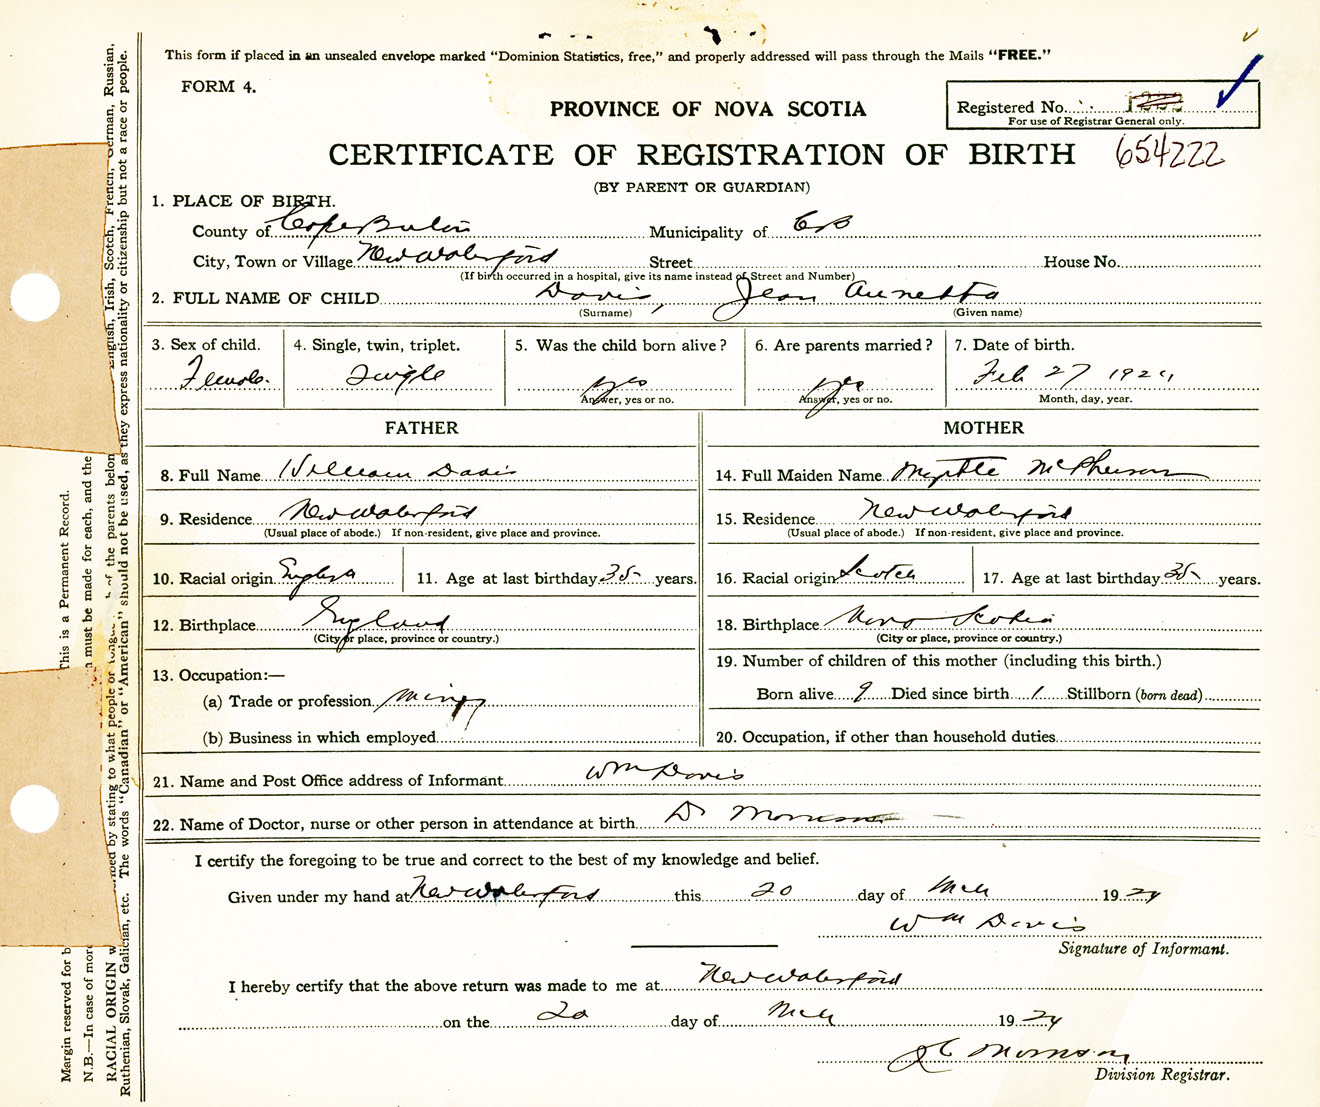 This form if placed in an unsealed envelope marked "Dominion Statistics, free," and properly addressed will pass through the Mails "FREE."
FORM 4.
PROVINCE OF NOVA SCOTIA
Registered No.
For use of Registrar General only.
CERTIFICATE OF REGISTRATION OF BIRTH 654222
(BY PARENT OR GUARDIAN)
1. PLACE OF BIRTH.
County of Cape Breton Municipality of C B
City, Town or Village New Waterford Street House No.
(If birth occurred in a hospital, give its name instead of Street and Number)
2. FULL NAME OF CHILD Davis, Jean Annetta
(Surname) (Given name)
3. Sex of child. 4. Single, twin, triplet. 5. Was the child born alive? 6. Are parents married? 7. Date of birth.
Female. Single yes yes Feb 27 192
Answer, yes or no. Answer, yes or no. Month, day, year.
FATHER MOTHER
8. Full Name William Davis 14. Full Maiden Name Myrtle McPherson
9. Residence New Waterford 15. Residence New Waterford
(Usual place of abode.) If non-resident, give place and province. (Usual place of abode.) If non-resident, give place and province.
10. Racial origin English 11. Age at last birthday 35 years. 16. Racial origin Scotch 17. Age at last birthday 35 years.
12. Birthplace England 18. Birthplace Nova Scotia
(City or place, province or country.) (City or place, province or country.)
13. Occupation:— 19. Number of children of this mother (including this birth.)
(a) Trade or profession Born alive 9 Died since birth 1 Stillborn (born dead)
(b) Business in which employed 20. Occupation, if other than household duties
21. Name and Post Office address of Informant Wm Davis
22. Name of Doctor, nurse or other person in attendance at birth Dr Morrison
I certify the foregoing to be true and correct to the best of my knowledge and belief.
Given under my hand at New Waterford this 20 day of Mch 19
Wm Davis
Signature of Informant.
I hereby certify that the above return was made to me at New Waterford
on the 20 day of Mch 19
Morrison
Division Registrar.
Margin reserved for b
This is a Permanent Record.
N.B.—In case of more
must be made for each, and the
RACIAL ORIGIN
by stating to what people or
of the parents belon
English, Irish, Scotch, French, German, Russian,
Ruthenian, Slovak, Galician, etc. The words "Canadian" or "American" should not be used, as they express nationality or citizenship but not a race or people.